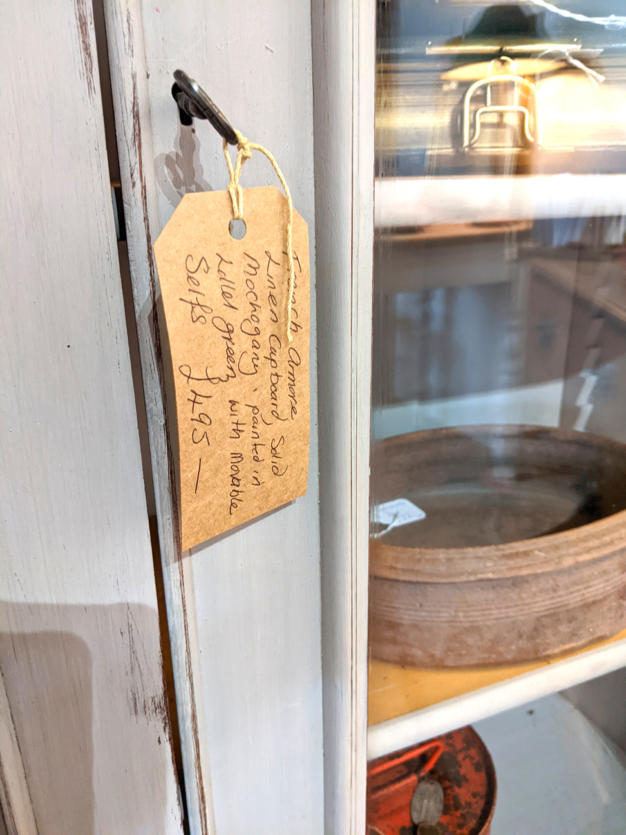 French Armore
Linen Cupboard Solid
Mochogany, painted in
Lillet green, with movable
Selfs £495 —